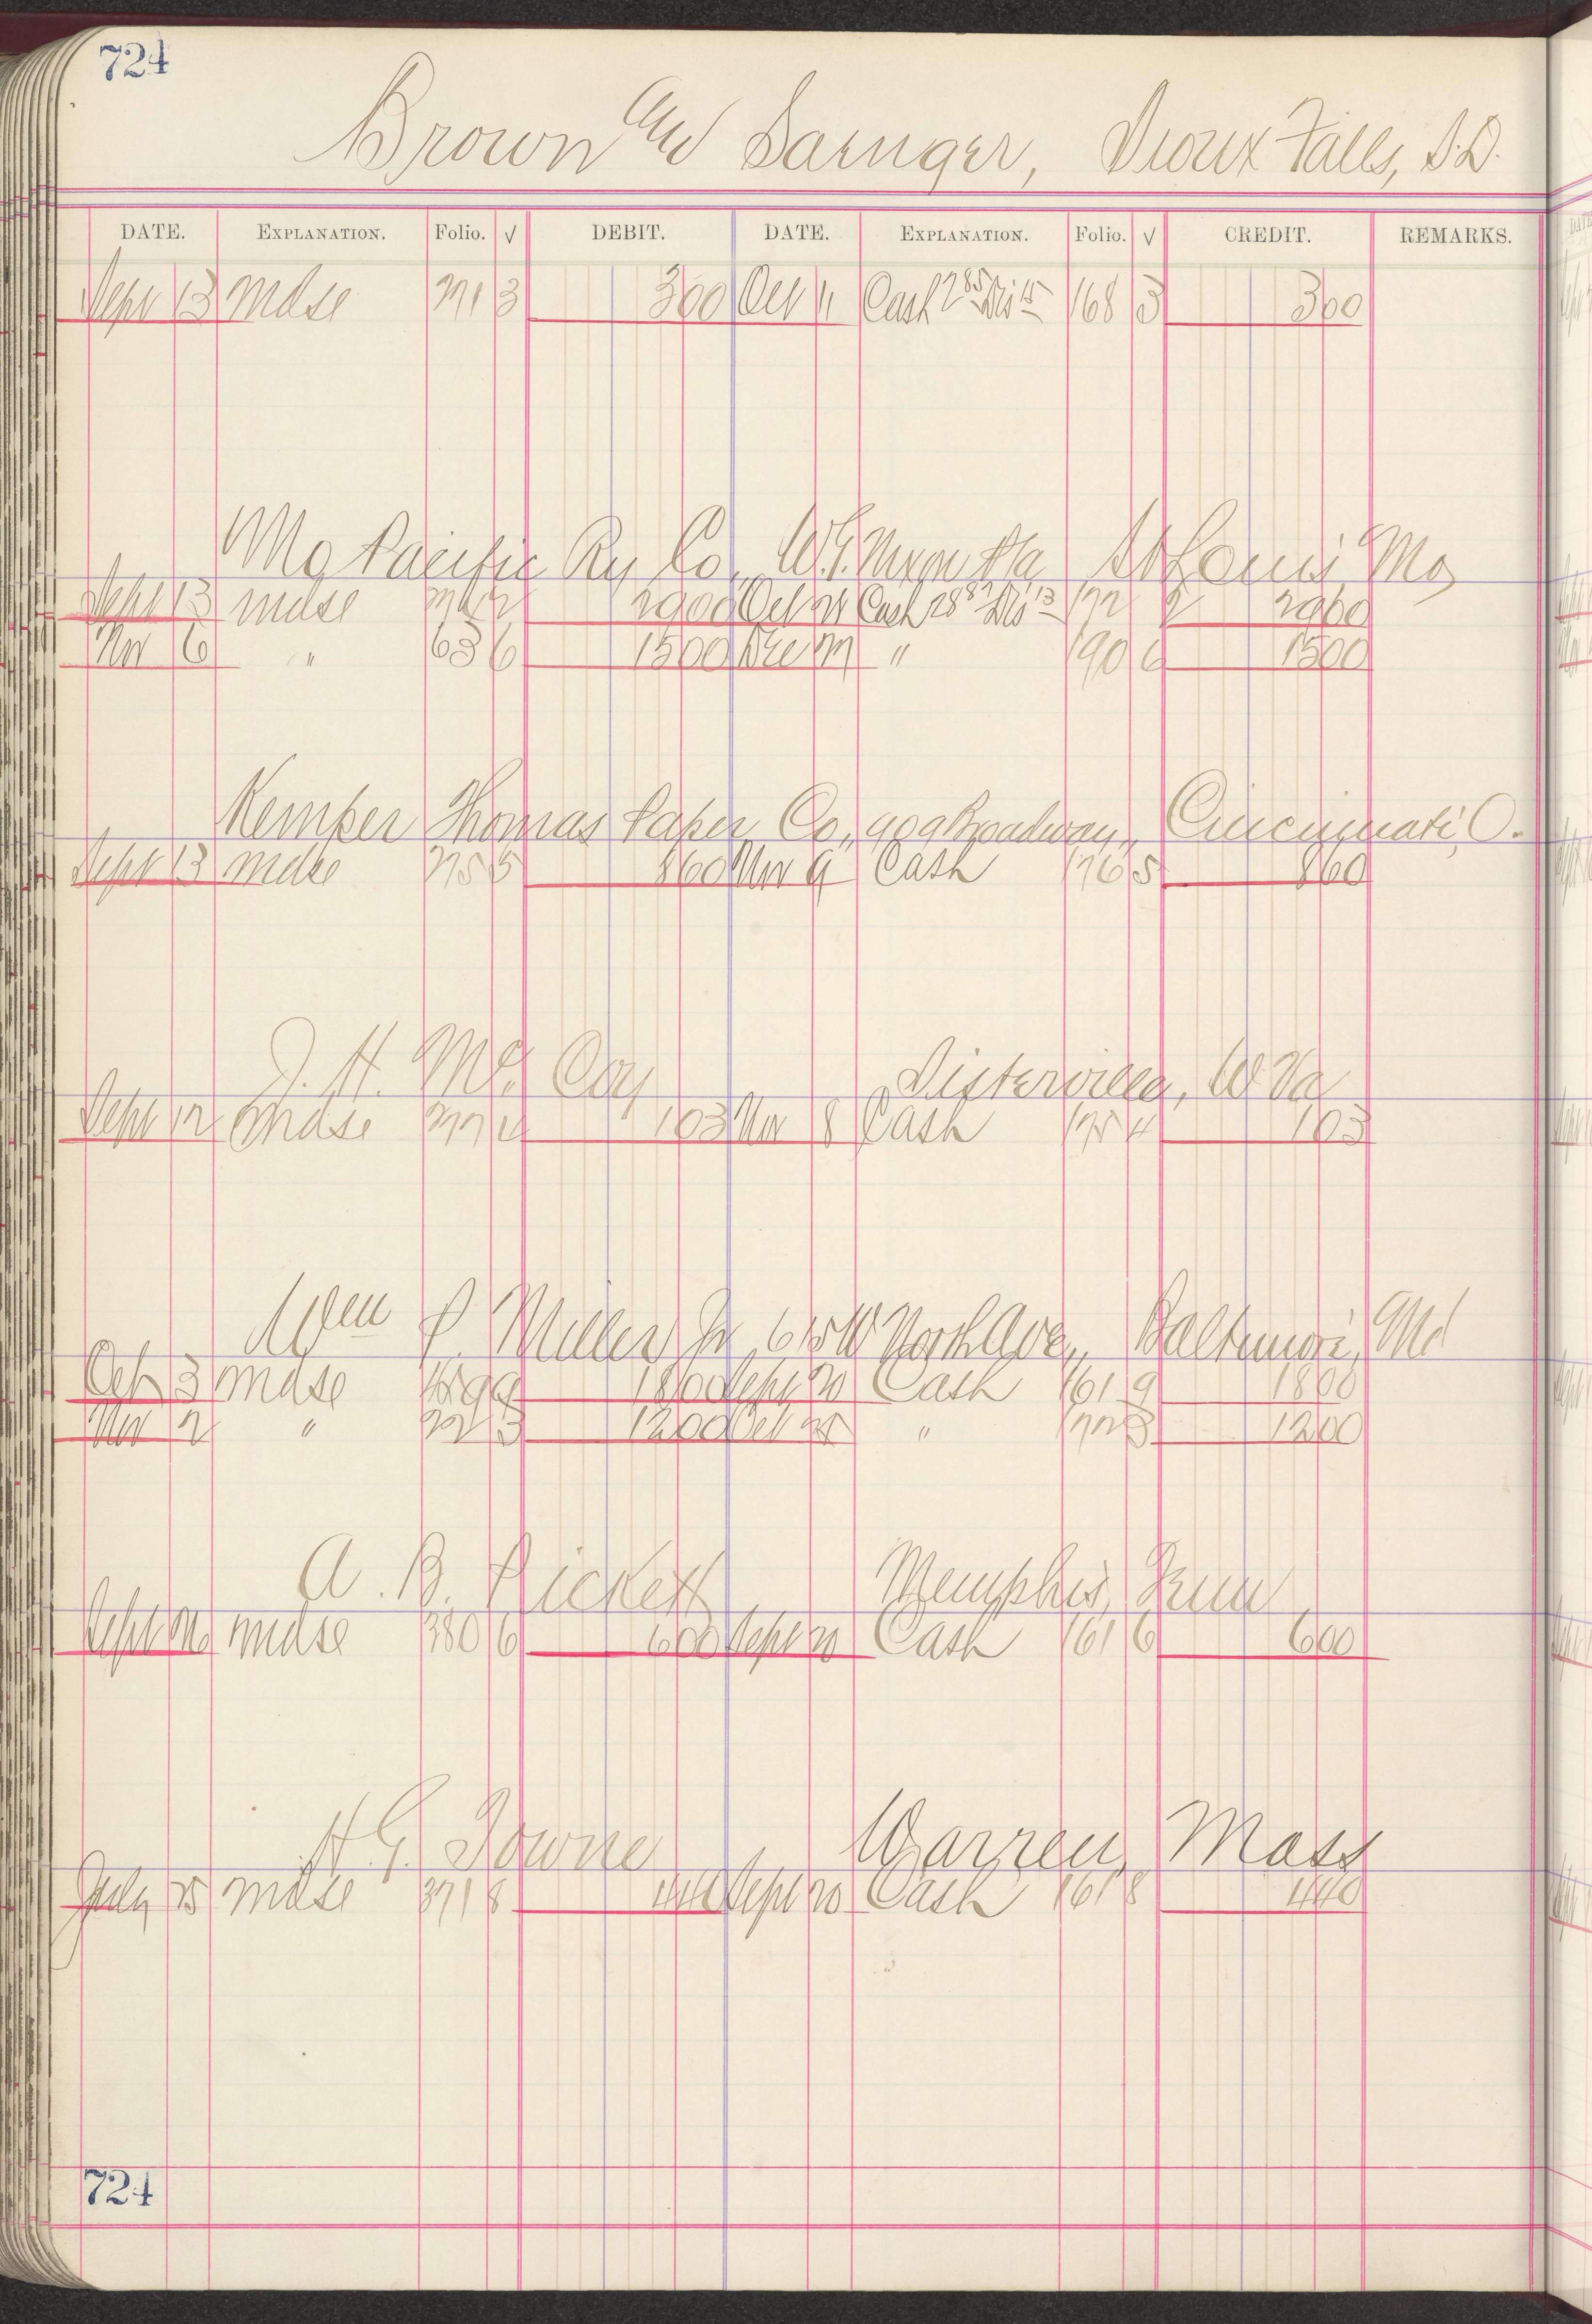 724
Brown and Saenger, Sioux Falls, S.D.
DATE. EXPLANATION. Folio. √ DEBIT. DATE. EXPLANATION. Folio. √ CREDIT. REMARKS.
Sept 13 Mdse 3 300 Oct 11 Cash 2 85 Dis 15 168 3 300
Mo Pacific Ry Co, St Louis, Mo
Sept 13 mdse 2900 Oct Cash 28 87 Dis 13 172 2 2900
Nov 6 " 63 6 1500 Dec " 190 6 1500
Kemper Thomas Paper Co, 909 Broadway, Cincinnati, O.
Sept 13 mdse 5 860 Nov 9 Cash 176 5 860
J. H. Mc Coy Sisterville, W. Va
Sept 12 Mdse 4 103 Nov 8 Cash 4 103
P. Miller Jr, North Ave, Baltimore, Md
3 Mdse 9 1800 Sept 20 Cash 161 9 1800
Nov 2 " 3 1200 Oct " 172 3 1200
A. B. Pickett Memphis, Tenn
Sept mdse 380 6 600 Sept 20 Cash 161 6 600
H. G. Towne Warren, Mass
July 25 mdse 371 8 440 Sept 20 Cash 161 8 440
724